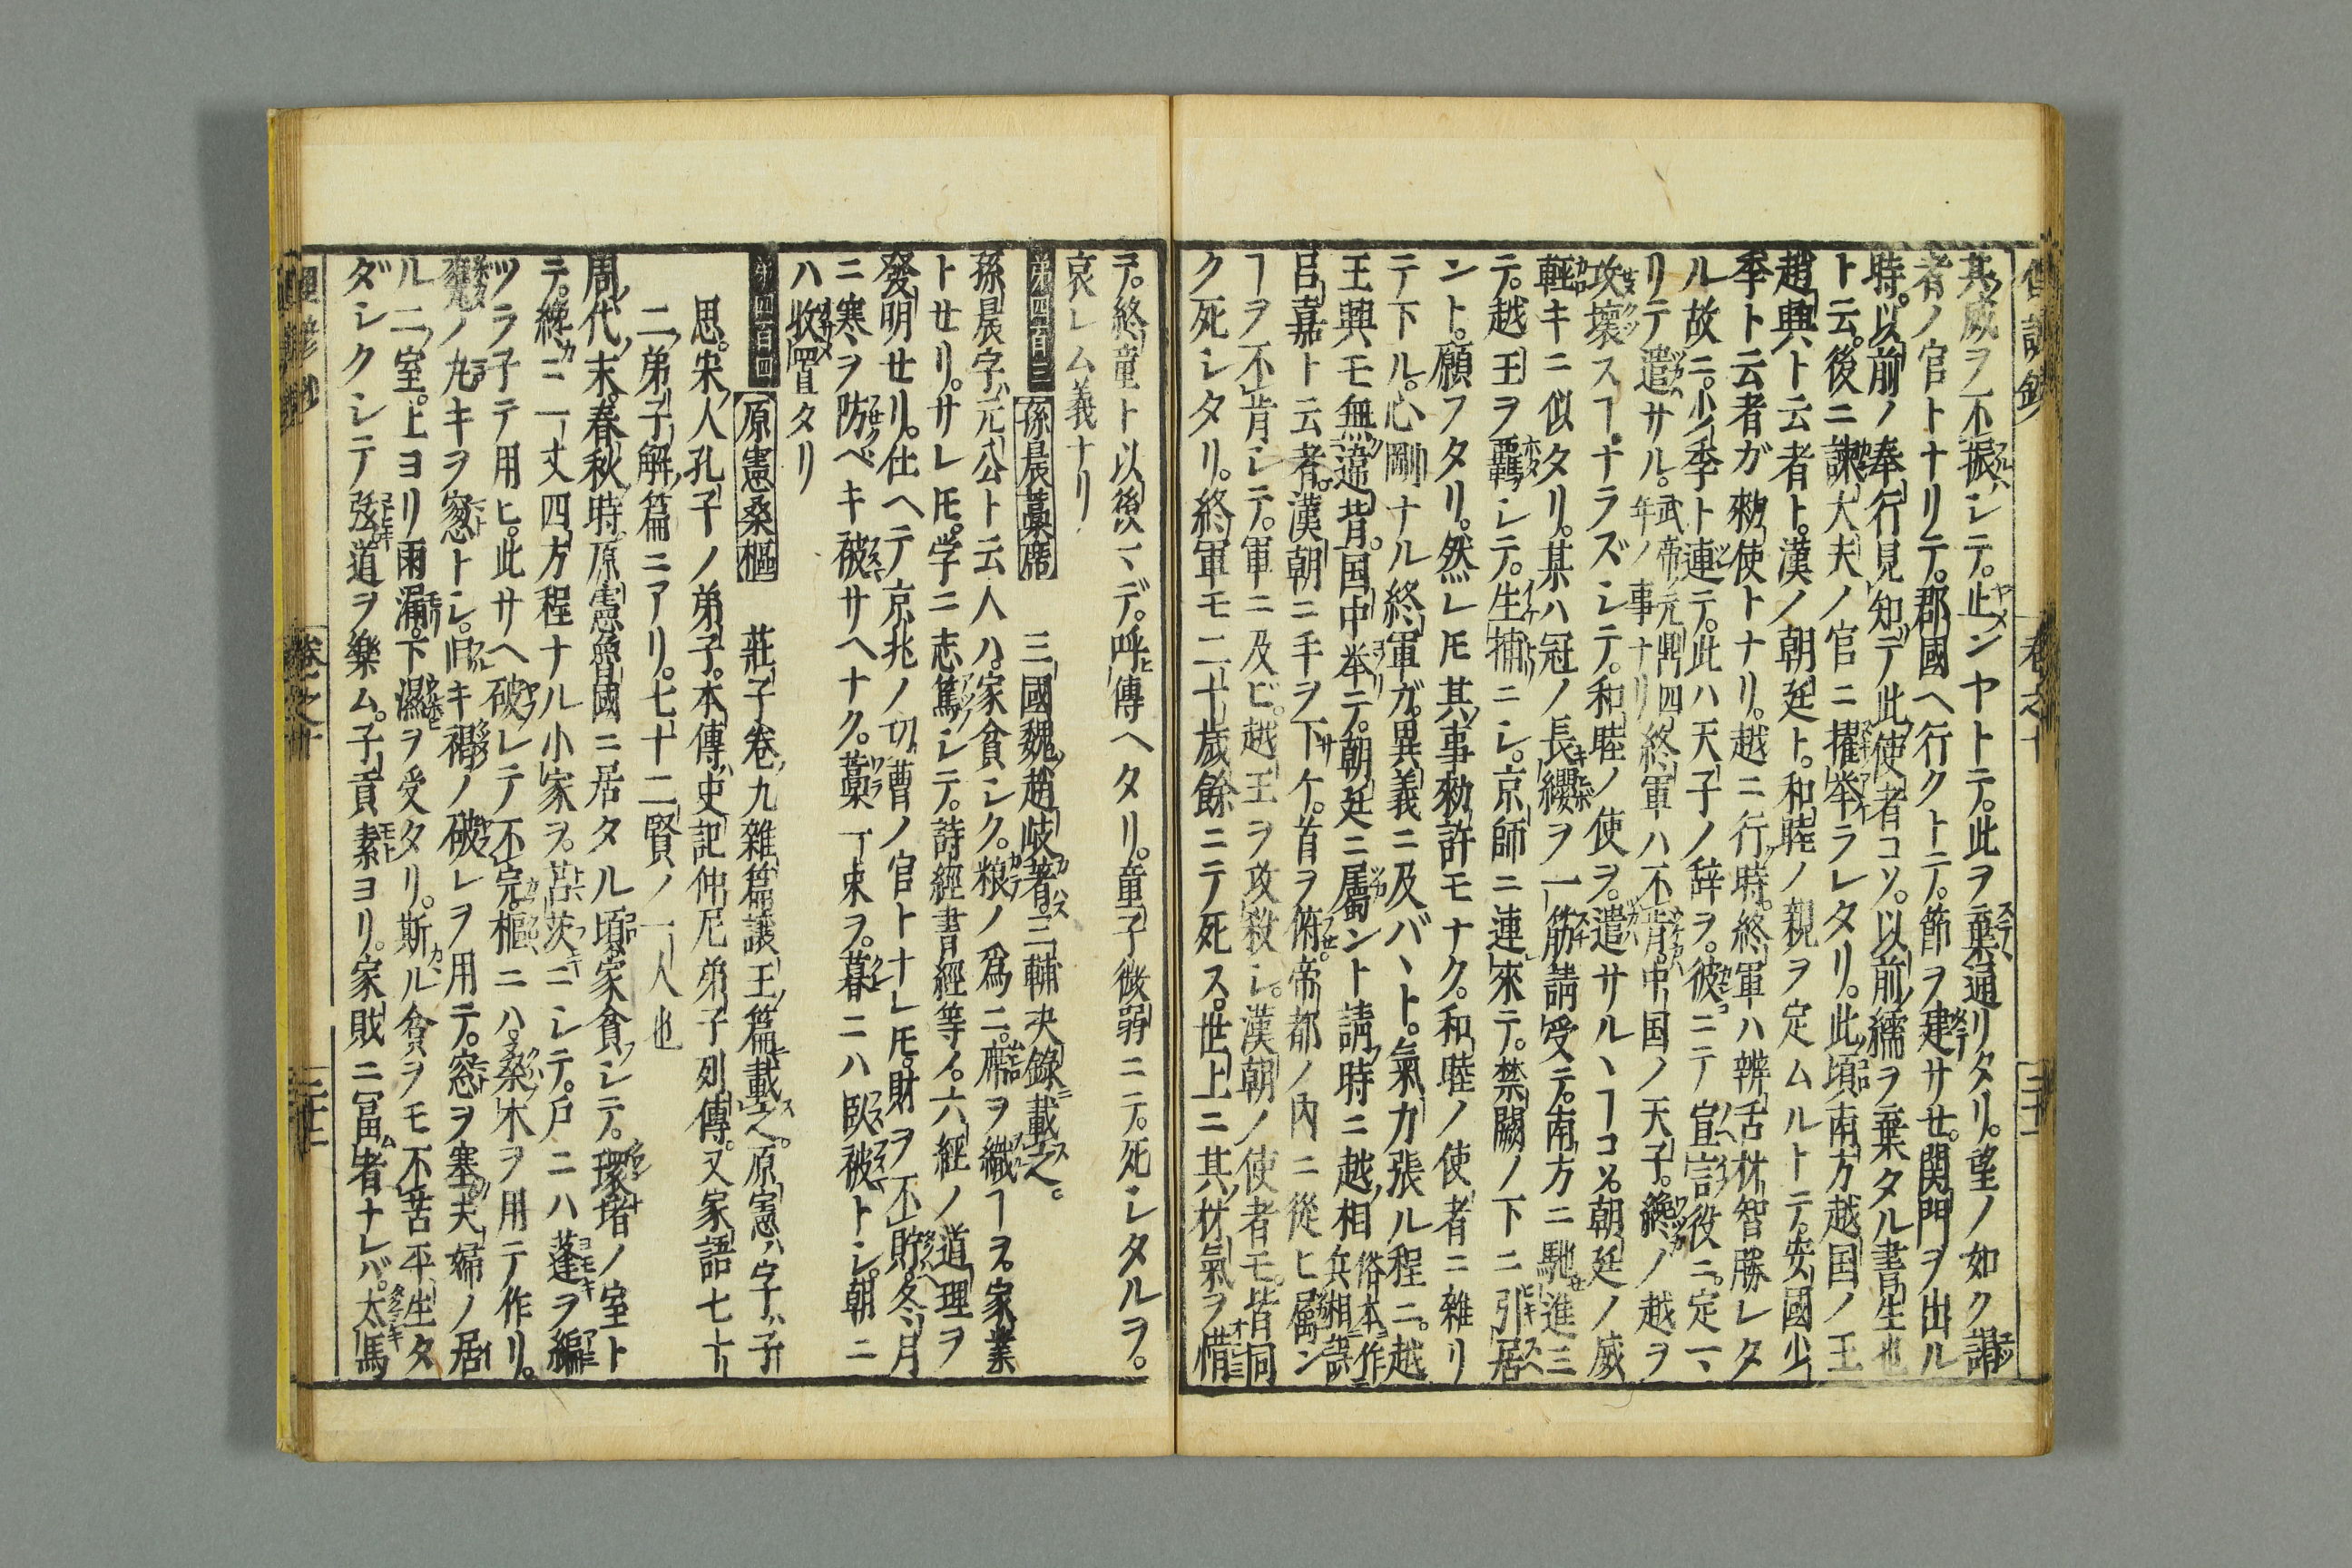 其威ヲ不振シテ。止ンヤトテ。此ヲ棄通リタリ。望ノ如ク謁
者ノ官トナリテ。郡國ヘ行クトテ。節ヲ建サセ。関門ヲ出ル
時。以前ノ奉行見知テ此使者コソ。以前繻ヲ棄タル書生也
ト云。後ニ諫大夫ノ官ニ擢挙ラレタリ。此頃南方越国ノ王
趙興ト云者ト。漢ノ朝廷ト。和睦ノ親ヲ定ムルトテ。安國少
季ト云者ガ勑使トナリ。越ニ行時。終軍ハ辨舌材智勝レタ
ル故ニ。少季ト連テ。此ハ天子ノ辞ヲ。彼ニテ宣言役ニ。定一丶
リテ遣サル。武帝元鼎四年ノ事ナリ終軍ハ不肯中国ノ天子。纔ノ越ヲ
攻壞スヿナラズシテ。和睦ノ使ヲ。遣サル丶ヿコソ。朝廷ノ威
輕キニ似タリ。某ハ冠ノ長纓ヲ一筋請受テ。南方ニ馳進三
テ。越王ヲ羈シテ。生捕ニシ。京師ニ連來テ。禁闕ノ下ニ引居
ント。願フタリ。然レ𪜈其事勑許モナク。和睦ノ使者ニ雜リ
テ下ル。心剛ナル終軍ガ。異義ニ及バ丶ト。氣力張ル程ニ。越
王興モ無違背。国中挙テ。朝廷ニ屬ント請時ニ越相俗本作兵相誤
呂嘉ト云者。漢朝ニ手ヲ下ケ。首ヲ俯。帝都ノ内ニ從ヒ屬ン
ヿヲ不肯シテ。軍ニ及ビ。越王ヲ攻殺シ。漢朝ノ使者モ。皆同
ク死シタリ。終軍モ二十歳餘ニテ死ス。世上ニ其材氣ヲ惜
テ。終童ト以後マデ。呼傳ヘタリ。童子微弱ニテ。死シタルヲ。
哀レム義ナリ
第四百三 孫晨藁席 三國魏趙岐著。三輔決錄ニ載之。
孫晨字元公ト云人ハ。家貧シク。粮ノ爲ニ。席ヲ織ヿヲ。家業
トセリ。サレ𪜈。学ニ志篤シテ。詩經書經等ノ。六經ノ道理ヲ
發明セリ。仕ヘテ京兆ノ功曹ノ官トナレ𪜈。財ヲ不貯。冬月
ニ寒ヲ防ベキ被サヘナク。藁一束ヲ。暮ニハ臥被トシ。朝ニ
ハ收置タリ
第四百四 原憲桑樞 莊子卷九雜篇讓王篇載之。原憲ハ字ハ子
思。宋人孔子ノ弟子。本傳史記仲尼弟子列傳。又家語七十
二弟子解篇ニアリ。七十二賢ノ一人也
周代末。春秋時。原憲魯國ニ居タル頃家貧シテ。環堵ノ室ト
テ。纔ニ一丈四方程ナル小家ヲ。苫茨ニシテ。戶ニハ蓬ヲ編
ツラ子テ用ヒ。此サヘ破レテ不完。樞ニハ。桑木ヲ用テ作リ。
甕ノ丸キヲ窓トシ。旧キ褐ノ破レヲ用テ。窓ヲ塞。夫婦ノ居
ル二室。上ヨリ雨漏。下濕ヲ受タリ。斯ル貧ヲモ不苦平生タ
ダシクシテ弦道ヲ樂ム。子貢素ヨリ。家財ニ冨者ナレバ。太馬
卷之十
卷之十